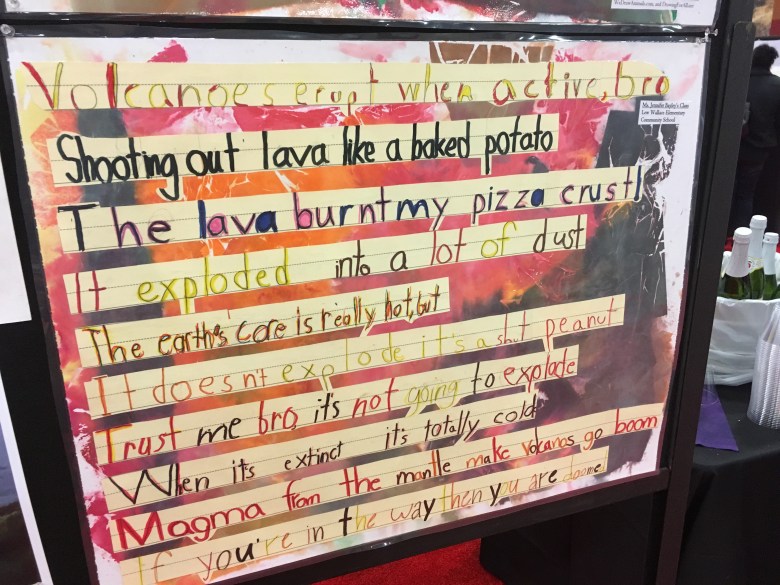 WaDowntomah.com, and DrawingForAllure
Volcanoes erupt when active, bro
Ms. Jennifer Bagley's Class
Lew Wallace Elementary
Community School
Shooting out lava like a baked potato
The lava burnt my pizza crust!
It exploded into a lot of dust
The earth's core is really hot, but
It doesn't explode it's a shut peanut
Trust me bro, it's not going to explode
When it's extinct it's totally cold
Magma from the mantle make volcanos go boom
If you're in the way then you are doomed